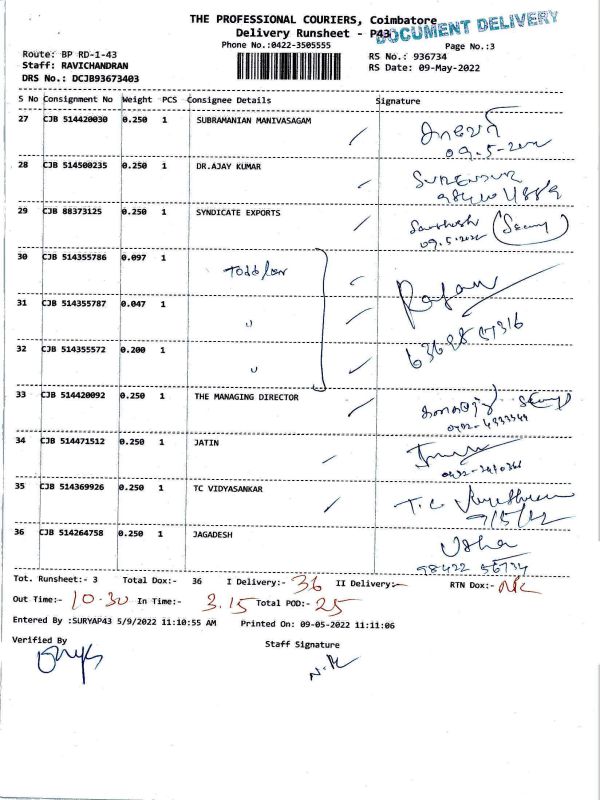 THE PROFESSIONAL COURIERS, Coimbatore
DOCUMENT DELIVERY
Delivery Runsheet - P43
Phone No.:0422-3505555
Page No.:3
Route: BP RD-1-43
RS No.: 936734
Staff: RAVICHANDRAN
RS Date: 09-May-2022
DRS No.: DCJB93673403
S No Consignment No Weight PCS Consignee Details Signature
27 CJB 514420030 0.250 1 SUBRAMANIAN MANIVASAGAM
09.5-2022
28 CJB 514500235 0.250 1 DR.AJAY KUMAR SURENDUR
29 CJB 88373125 0.250 1 SYNDICATE EXPORTS Santhosh
09.5.2022
30 CJB 514355786 0.097 1 Toddler Rajan
31 CJB 514355787 0.047 1 "
32 CJB 514355572 0.200 1 "
33 CJB 514420092 0.250 1 THE MANAGING DIRECTOR
34 CJB 514471512 0.250 1 JATIN
35 CJB 514369926 0.250 1 TC VIDYASANKAR T.C
9/5/22
36 CJB 514264758 0.250 1 JAGADESH Usha
98422 56734
Tot. Runsheet:- 3 Total Dox:- 36 I Delivery:- 36 II Delivery:- RTN Dox:- NIL
Out Time:- 10.30 In Time:- 3.15 Total POD:- 25
Entered By :SURYAP43 5/9/2022 11:10:55 AM Printed On: 09-05-2022 11:11:06
Verified By
Staff Signature